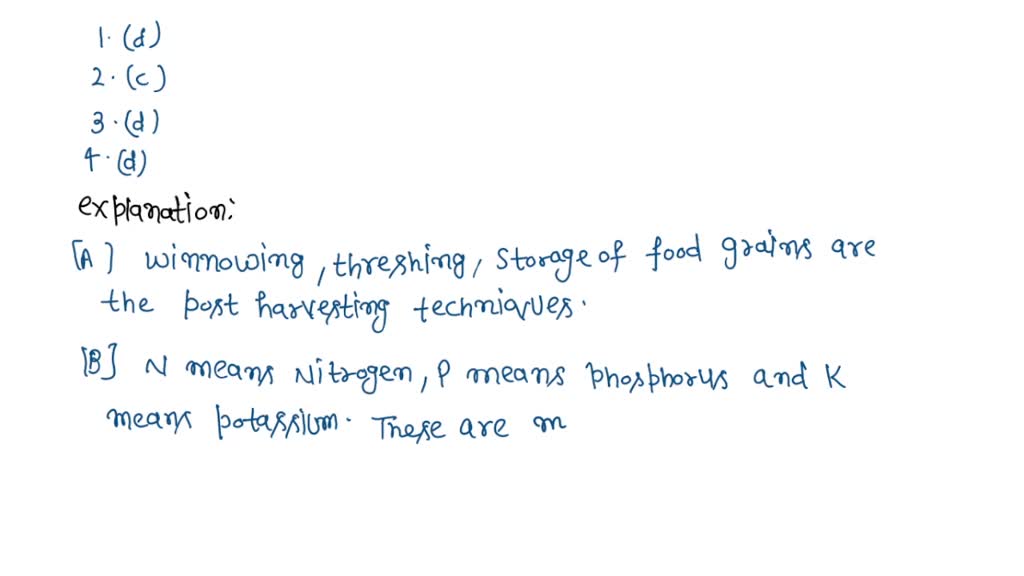 1. (d)
2. (c)
3. (d)
4. (d)
explanation:
[A] winnowing, threshing, storage of food grains are
the post harvesting techniques.
[B] N means Nitrogen, P means phosphorus and K
means potassium. These are m